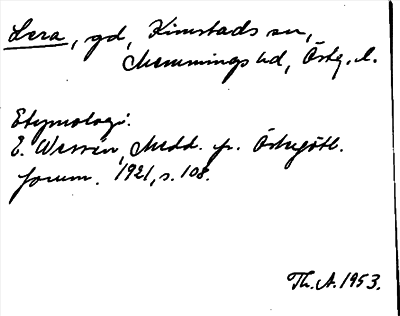 Lera, gd, Kimstads sn,
Memmings hd, Östg. l.
Etymologi.
E. Wessén, Medd. fr. Östergötl.
fornm. 1921, s. 108.
Th. A. 1953.